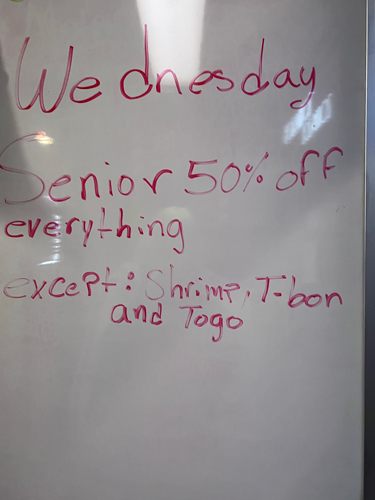 Wednesday
Senior 50% off
everything
except: Shrimp, T-bon
and Togo